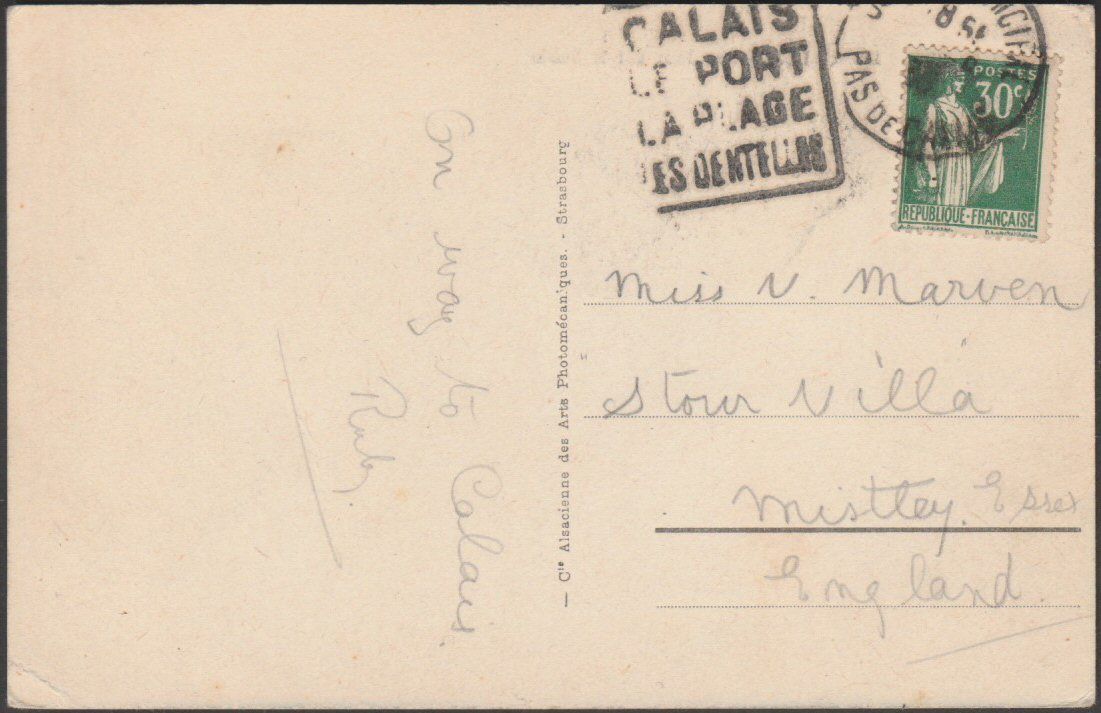 On way to Calais.
Ruby.
— Cie Alsacienne des Arts Photomécaniques. - Strasbourg
CALAIS
LE PORT
LA PLAGE
SES DENTELLES
PAS DE CALAIS
POSTES
30c
REPUBLIQUE-FRANÇAISE
Miss V. Marven
Stour Villa
Mistley. Essex
England.